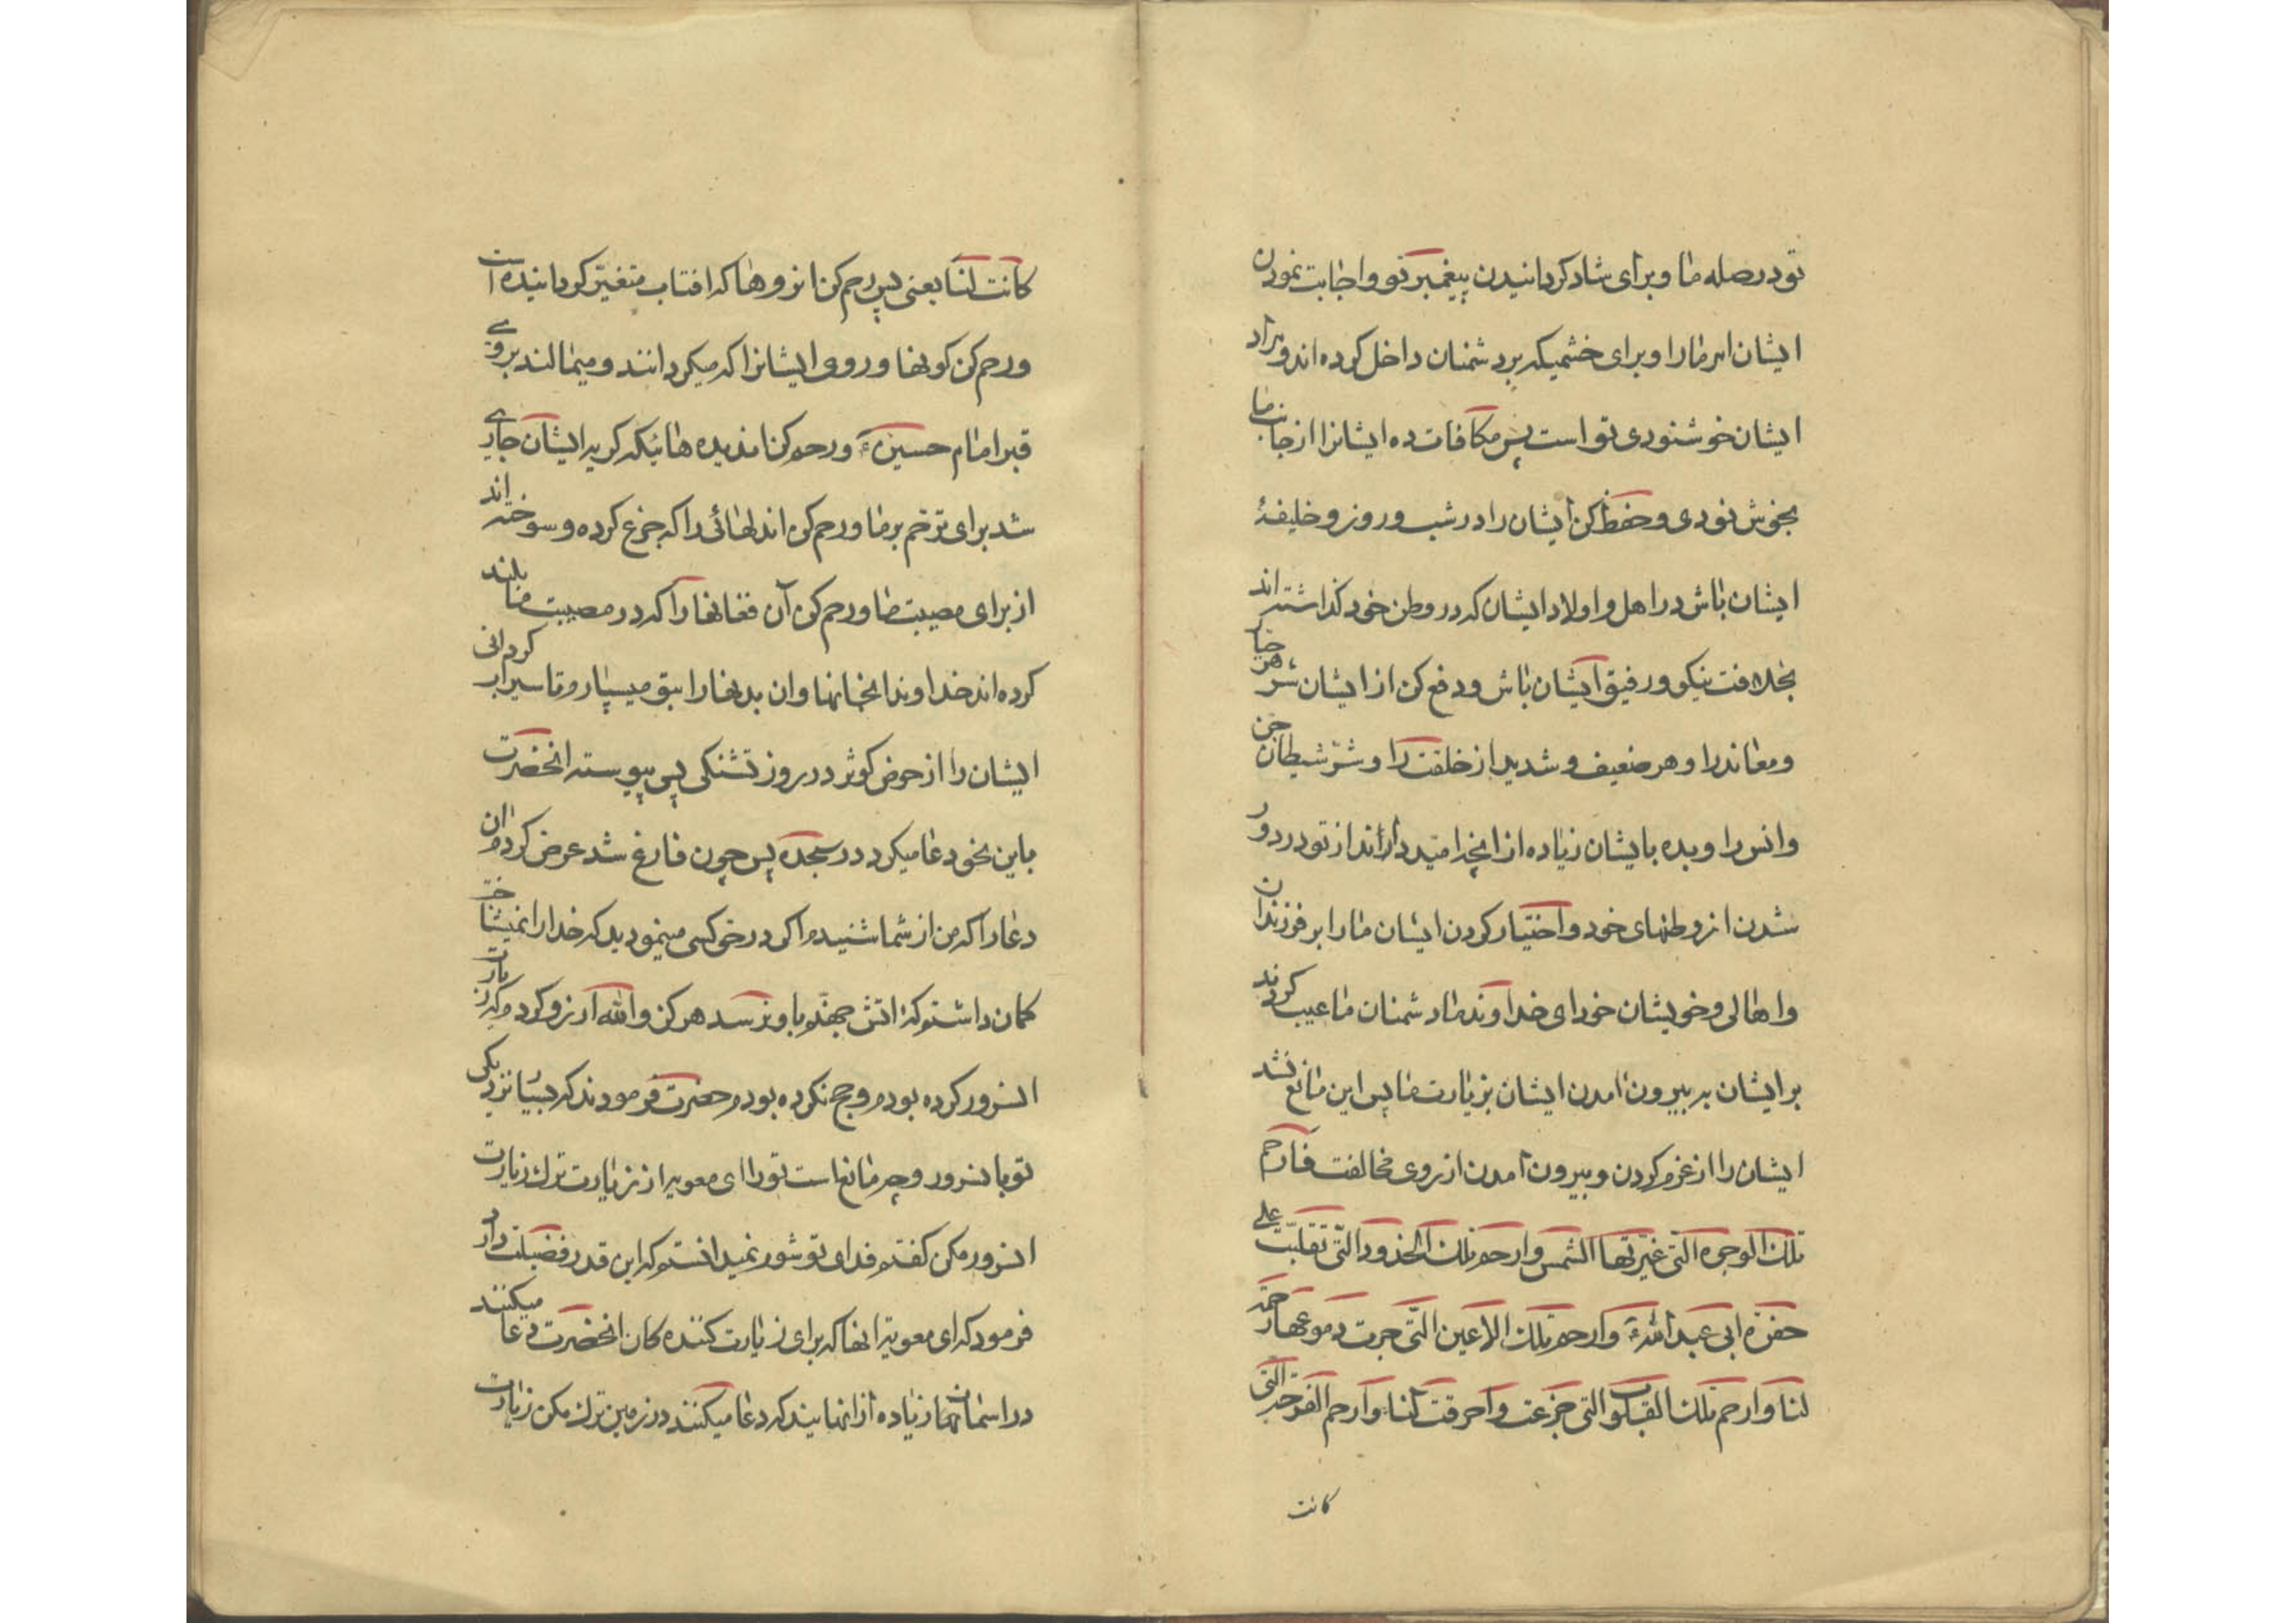 تو در صله ما و برای شاد کردانیدن پیغمبر تو و اجابت نمودن
ایشان امر ما را و برای خشمیکه بر دشمنان داخل کرده‌اند و مراد
ایشان خوشنودی تو است پس مکافات ده ایشانرا از جانب ما
بخوشنودی و حفظ کن ایشان را در شب و روز و خلیفهٔ
ایشان باش در اهل و اولاد ایشان که در وطن خود کذاشته‌اند
بخلافت نیکو و رفیق ایشان باش و دفع کن از ایشان شر هر جبار
و معاند را و هر ضعیف و شدید از خلقت را و شرّ شیطان جن
و انس را و بده بایشان زیاده از انچه امید دارند از تو در دور
شدن از وطنهای خود و اختیار کردن ایشان ما را بر فرزندان
و اهالی و خویشان خود ای خداوند ما دشمنان ما عیب کردند
بر ایشان به بیرون امدن ایشان بزیارت ما پس این مانع نشد
ایشان را از عزم کردن و بیرون امدن از روی مخالفت فارحم
تلك الوجوه الّتی غیّرتها الشمس و ارحم تلك الخدود الّتی تقلبّت علی
حفرة ابی عبد اللهؑ و ارحم تلك الاعین الّتی جرت دموعها رحمة
لنا و ارحم تلك القلوب التی جزعت و احرقت لنا و ارحم الصرخة التی
کانت
کانت لنا یعنی پس رحم کن انروها که افتاب متغیّر کردانیده است
و رحم کن کونها و روی ایشانرا که میکردانند و میمالند بروی
قبر امام حسینؑ و رحم کن ان دیده هائیکه کریه ایشان جاری
شد برای ترحم بر ما و رحم کن اندلهائی را که جزع کرده و سوخته‌اند
از برای مصیبت ما و رحم کن آن فغانها را که در مصیبت ما بلند
کرده‌اند خداوندا انجانها و ان بدنها را بتو میسپارم تا سیراب کردانی
ایشان را از حوض کوثر در روز تشنکی پس پیوسته انحضرت
باین نحو دعا میکرد در سجده پس چون فارغ شد عرض کردم ان
دعا را که من از شما شنیدم اکر در حق کسی مینمودید که خدا را نمیشناخت
کمان داشتم که اتش جهنّم باو نرسد هرکز والله ارزو کردم که زیارت
انسرور کرده بودم و حج نکرده بودم حضرت فرمودند که بسیار نزدیکی
تو بانسرور و چه مانع است تو را ای معویه از زیارت ترك زیارت
انسرور مکن کفتم فدای تو شوم نمیدانستم که این قدر فضیلت دارد
فرمود که ای معویه انها که برای زیارت کننده کان انحضرت دعا میکنند
در اسمان‌ها زیاده از انهایند که دعا میکنند در زمین ترك مکن زیارت